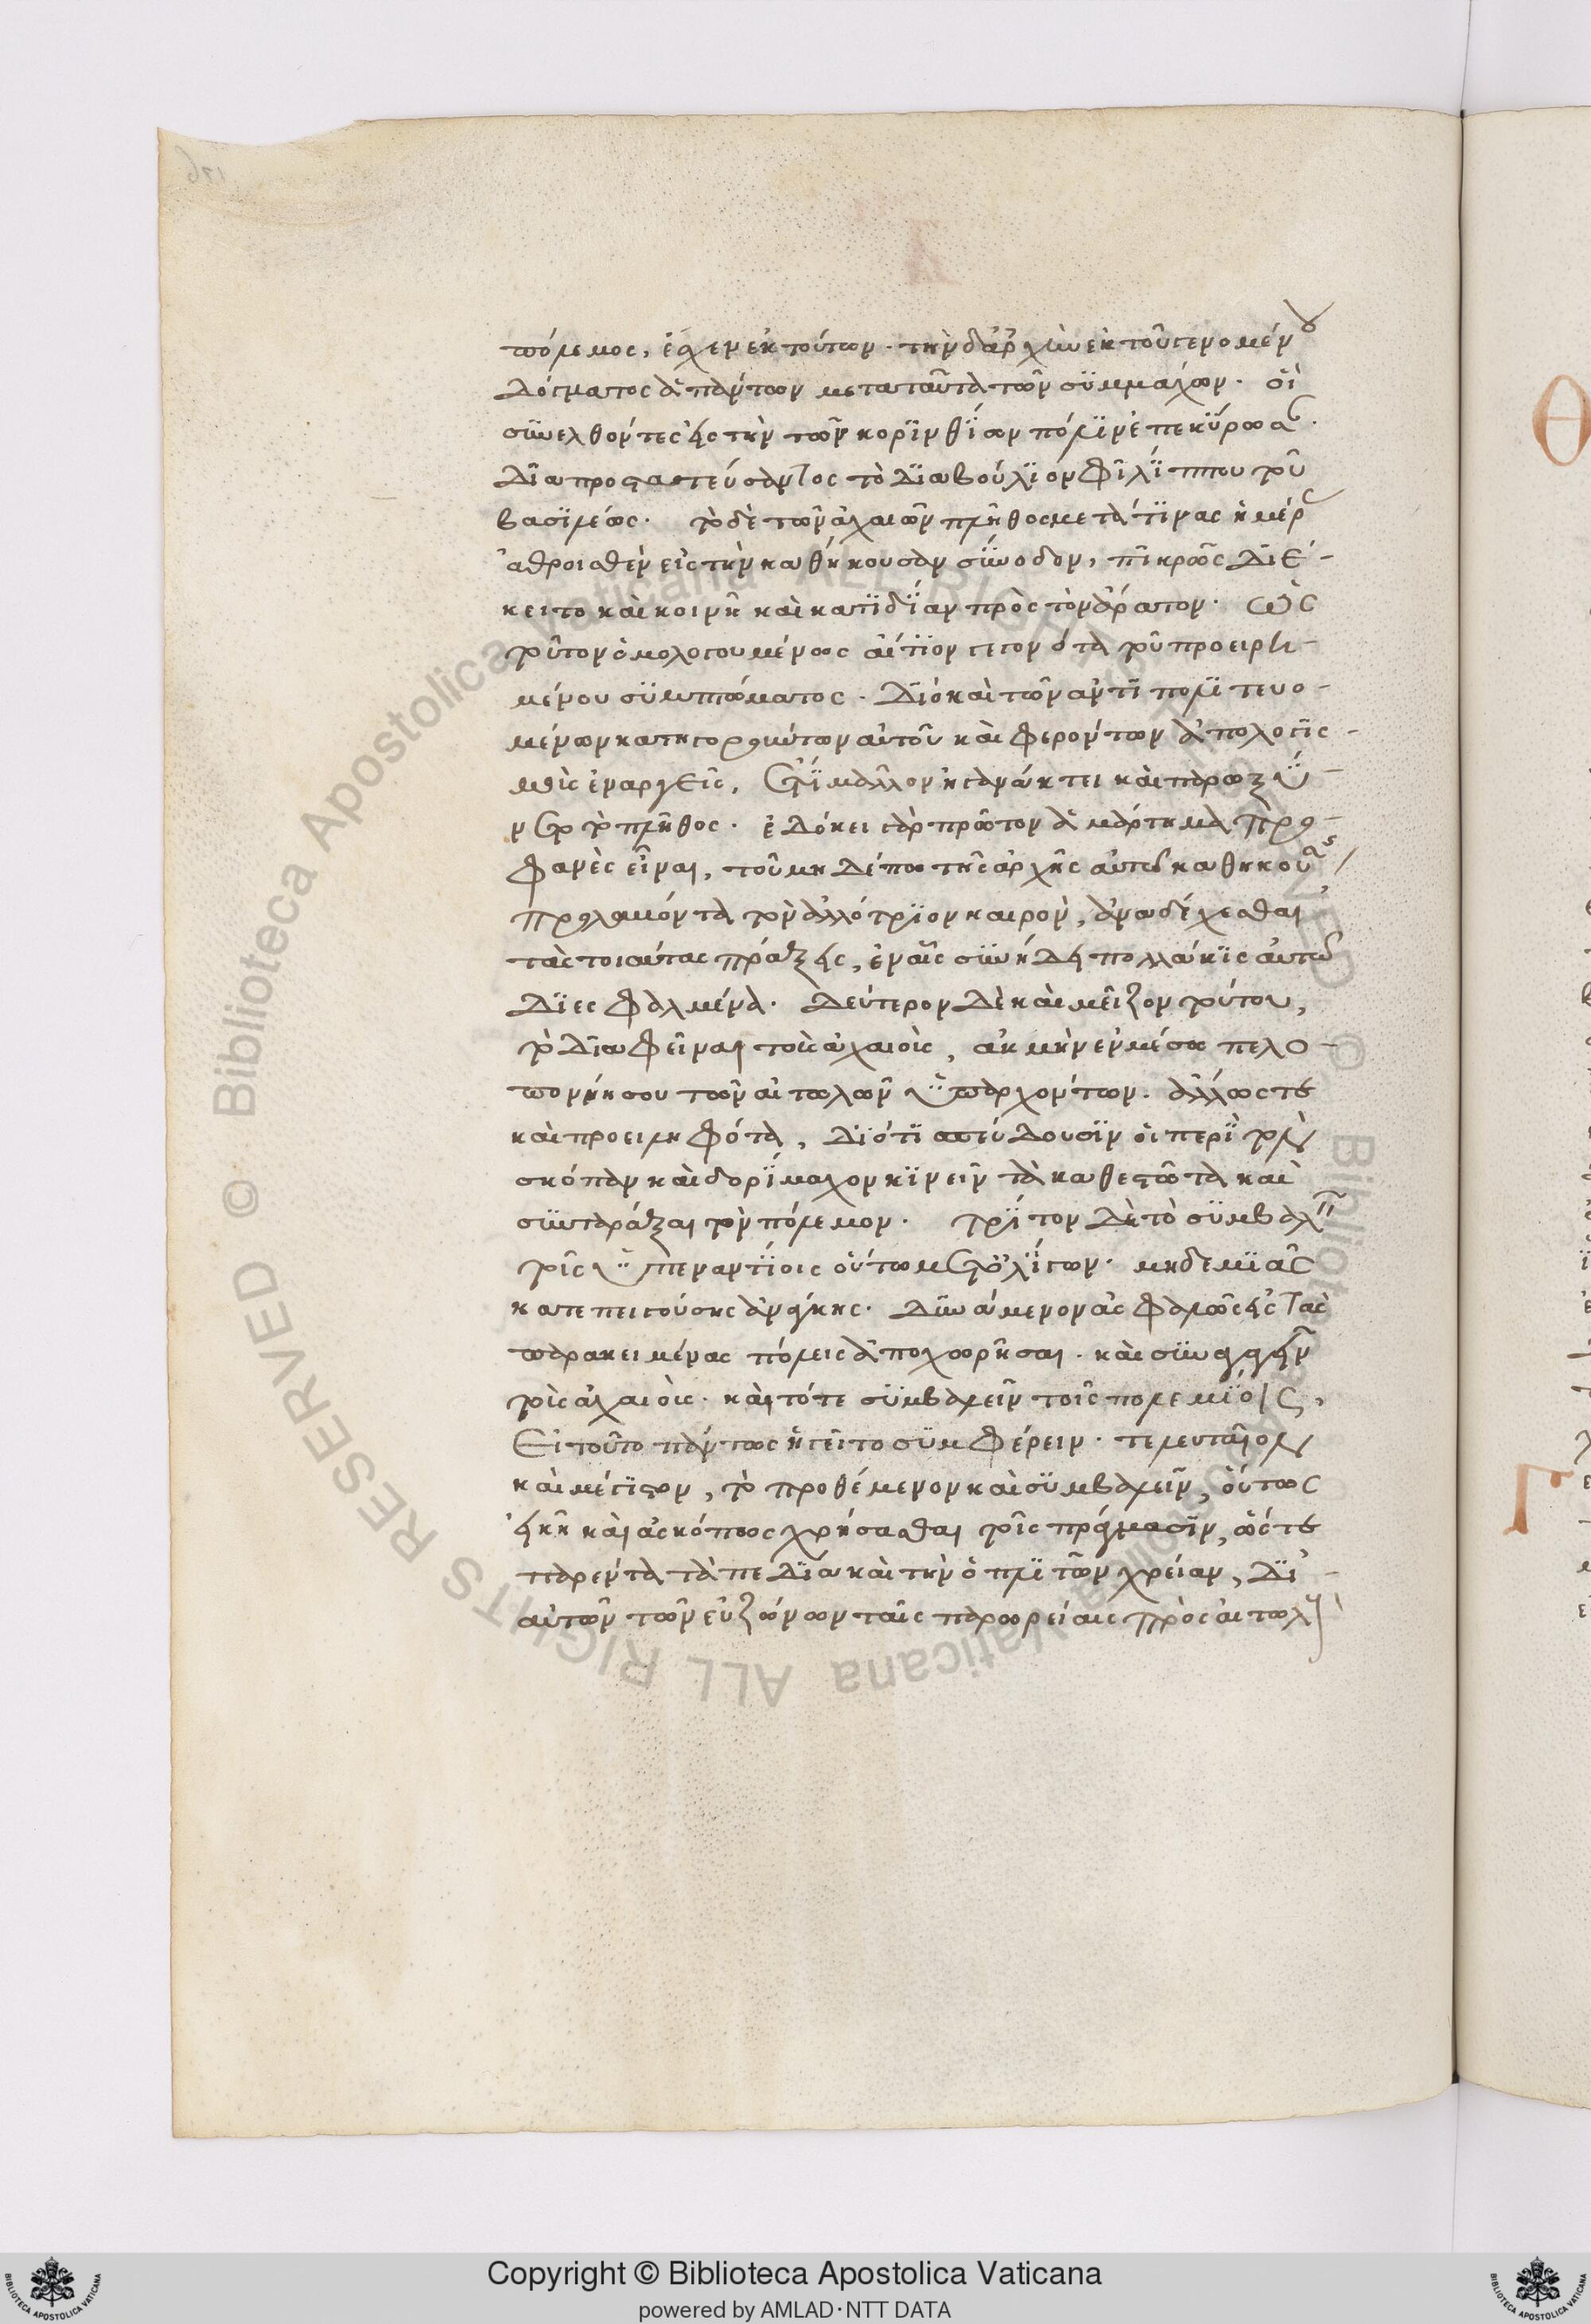 πόλεμος, ἔσχεν ἐκ τούτων. τὴν δ' ἀρχὴν ἐκ τοῦ γενομένου
δόγματος ἁπάντων μετὰ ταῦτα τῶν συμμάχων. οἳ
συνελθόντες εἰς τὴν τῶν κορινθίων πόλιν ἐπεκύρωσαν.
διαπροστατεύσαντος τὸ διαβούλιον φιλίππου τοῦ
βασιλέως. τὸ δὲ τῶν ἀχαιῶν πλῆθος μετά τινας ἡμέρας
ἁθροισθὲν εἰς τὴν καθήκουσαν σύνοδον, πικρῶς διέ-
κειτο καὶ κοινῇ καὶ κατ' ἰδίαν πρὸς τὸν ἄρατον. ὡς
τοῦτον ὁμολογουμένως αἴτιον γεγονότα τοῦ προειρη-
μένου συμπτώματος. διὸ καὶ τῶν ἀντιπολιτευο-
μένων κατηγορούντων αὐτοῦ καὶ φερόντων ἀπολογισ-
μοὺς ἐναργεῖς, ἔτι μᾶλλον ἠγανάκτει καὶ παρωξύ-
νετο τὸ πλῆθος. ἐδόκει γὰρ πρῶτον ἁμάρτημα προ-
φανὲς εἶναι, τοῦ μηδέπω τῆς ἀρχῆς αὐτῷ καθηκούσης
προλαβόντα τὸν ἀλλότριον καιρὸν, ἀναδέχεσθαι
τὰς τοιαύτας πράξεις, ἐν αἷς συνῄδει πολλάκις αὐτῷ
διεσφαλμένα. δεύτερον δὲ καὶ μεῖζον τούτου,
τὸ διαφεῖναι τοὺς ἀχαιοὺς, ἀκμὴν ἐν μέσῳ πελο-
ποννήσου τῶν αἰτωλῶν ὑπαρχόντων. ἄλλως τε
καὶ προειληφότα, διότι σπεύδουσιν οἱ περὶ τὸν
σκόπαν καὶ δορίμαχον κινεῖν τὰ καθεστῶτα καὶ
συνταράξαι τὸν πόλεμον. τρίτον δὲ τὸ συμβαλεῖν
τοῖς ὑπεναντίοις οὕτω μετ' ὀλίγων. μηδεμιᾶς
κατεπειγούσης ἀνάγκης. δυνάμενον ἀσφαλῶς εἰς τὰς
παρακειμένας πόλεις ἀποχωρῆσαι. καὶ συναγαγεῖν
τοὺς ἀχαιοὺς. καὶ τότε συμβαλεῖν τοῖς πολεμίοις,
εἰ τοῦτο πάντως ἡγεῖτο συμφέρειν. τελευταῖον
καὶ μέγιστον, τὸ προθέμενον καὶ συμβαλεῖν, οὕτως
εἰκῇ καὶ ἀσκόπως χρήσασθαι τοῖς πράγμασιν, ὥστε
παρέντα τὰ πεδία καὶ τὴν ὁπλιτῶν χρείαν, δι'
αὐτῶν τῶν εὐζώνων ταῖς παρωρείαις πρὸς αἰτωλοὺς
Copyright © Biblioteca Apostolica Vaticana
powered by AMLAD·NTT DATA